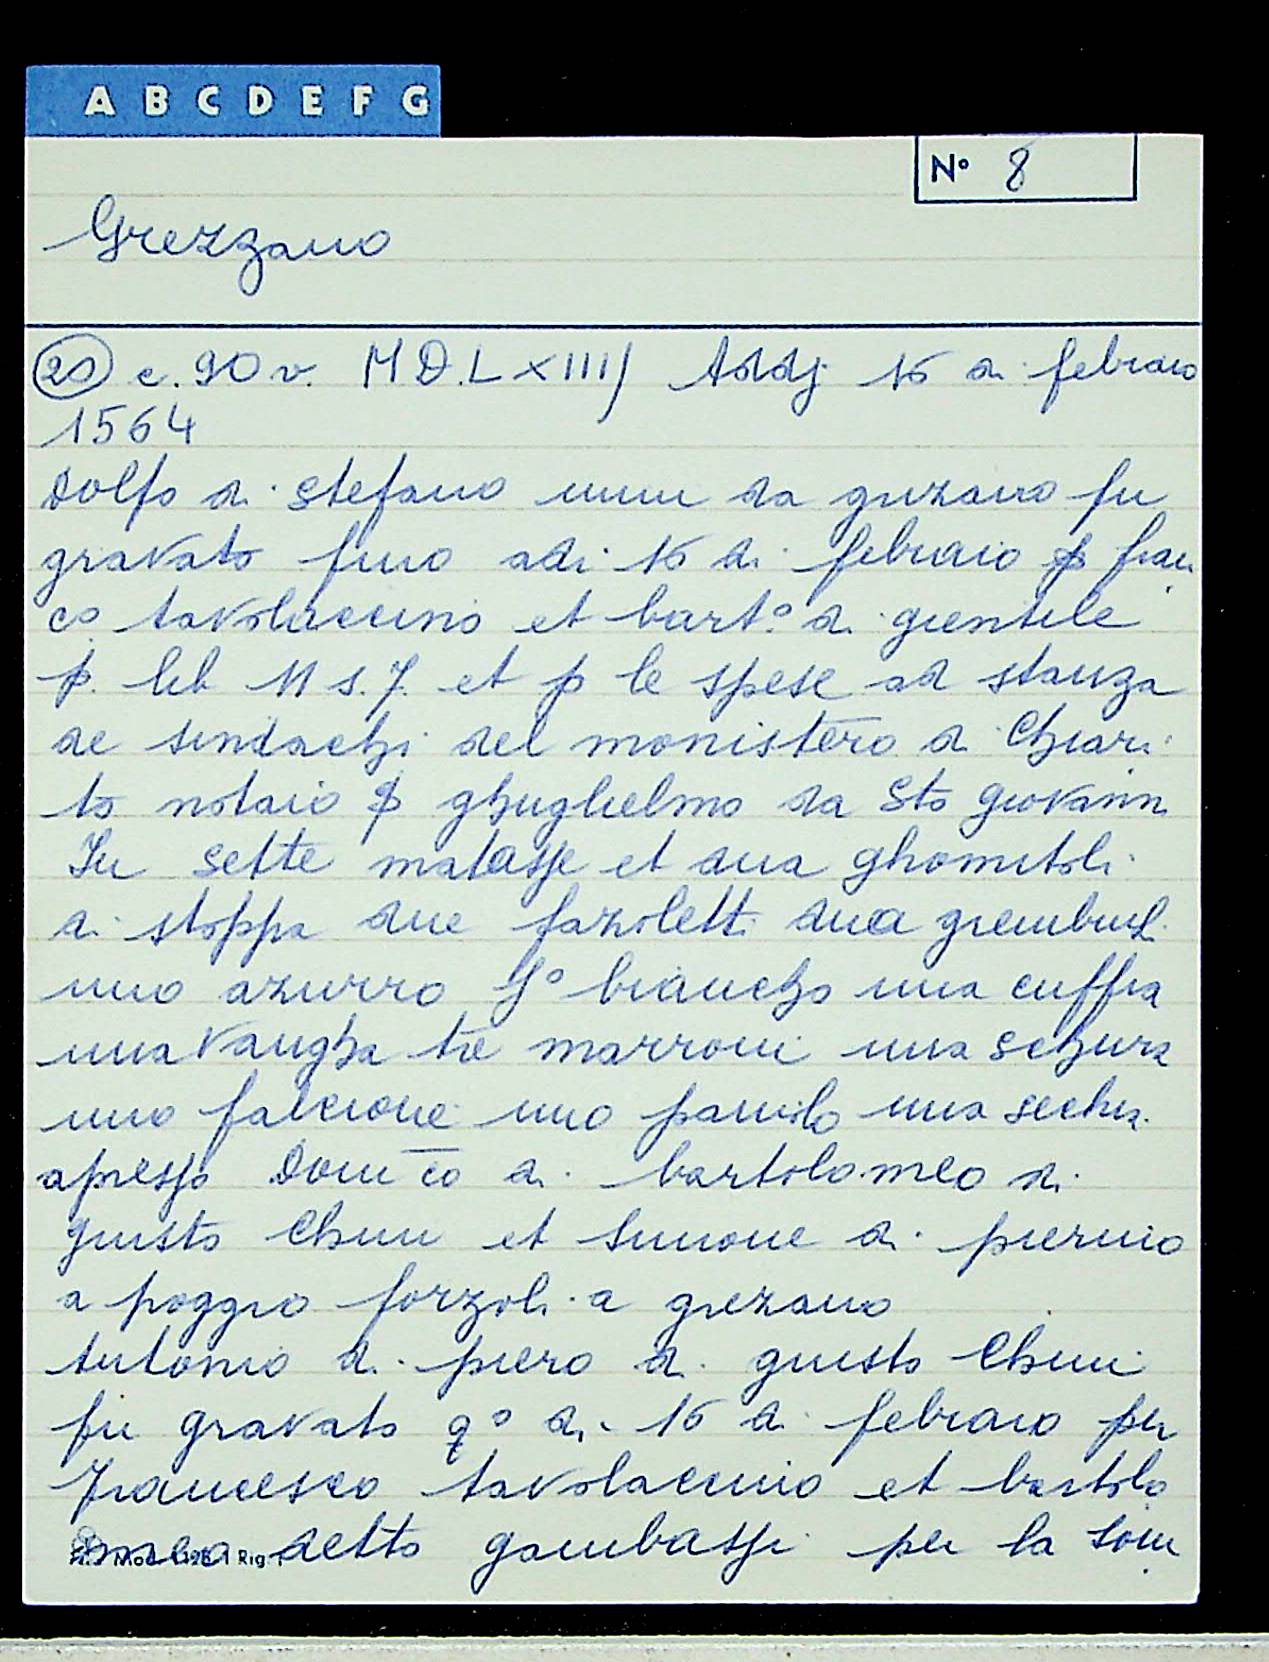 A B C D E F G
N° 8
Grezzano
20 c. 90 v. M D.L XIIIJ Addj 16 di febraio
1564
dolfo di stefano da grezano fu
gravato fino adi 16 di febraio p fran
co tavolaccino et bart.° di gientile
p. lib 11 s. 7. et p le spese ad stanza
de sindachi del monistero di Chiari
to notaio p ghuglielmo da Sto giovann
In sette matasse et dua ghomitoli
di stoppa due fazoletti dua grembiul.
uno azurro J° biancho una cuffia
una vangha tre marroni una schura
uno falcione uno una sechia.
apresso Domco di bartolomeo di
giusto Chini et Simone di pierino
a poggio forzoli a grezano
Antonio di piero di giusto Chini
fu gravato q° di 16 di febraio per
francesco tavolaccino et bartolo
meo detto gambassi per la som
Mod. Rig.